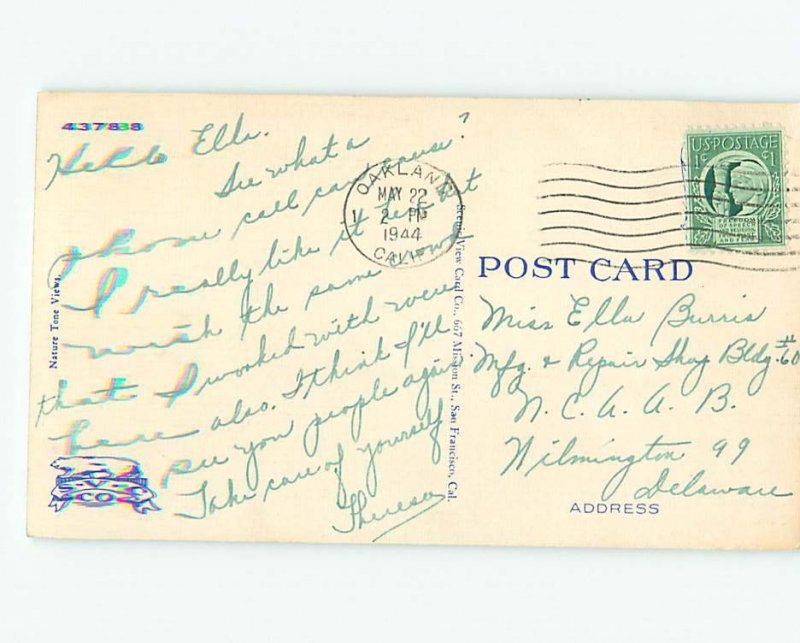 437838
Hello Ella.
See what a
phone call can cause?
I really like it here but
wish the same crowd
that I worked with were
here also. I think I'll
see you people again.
Take care of yourself
Theresa
Nature Tone Views.
S.V.C. CO.
Scenic View Card Co., 667 Mission St., San Francisco, Cal.
OAKLAND
MAY 22
1 2 PM
1944
CALIF.
U.S. POSTAGE
1¢ ¢1
FREEDOM
OF SPEECH
AND FEAR
POST CARD
Miss Ella Burris
Mfg. & Repair Shop Bldg. #60
N. C. A. A. B.
Wilmington 99
Delaware
ADDRESS